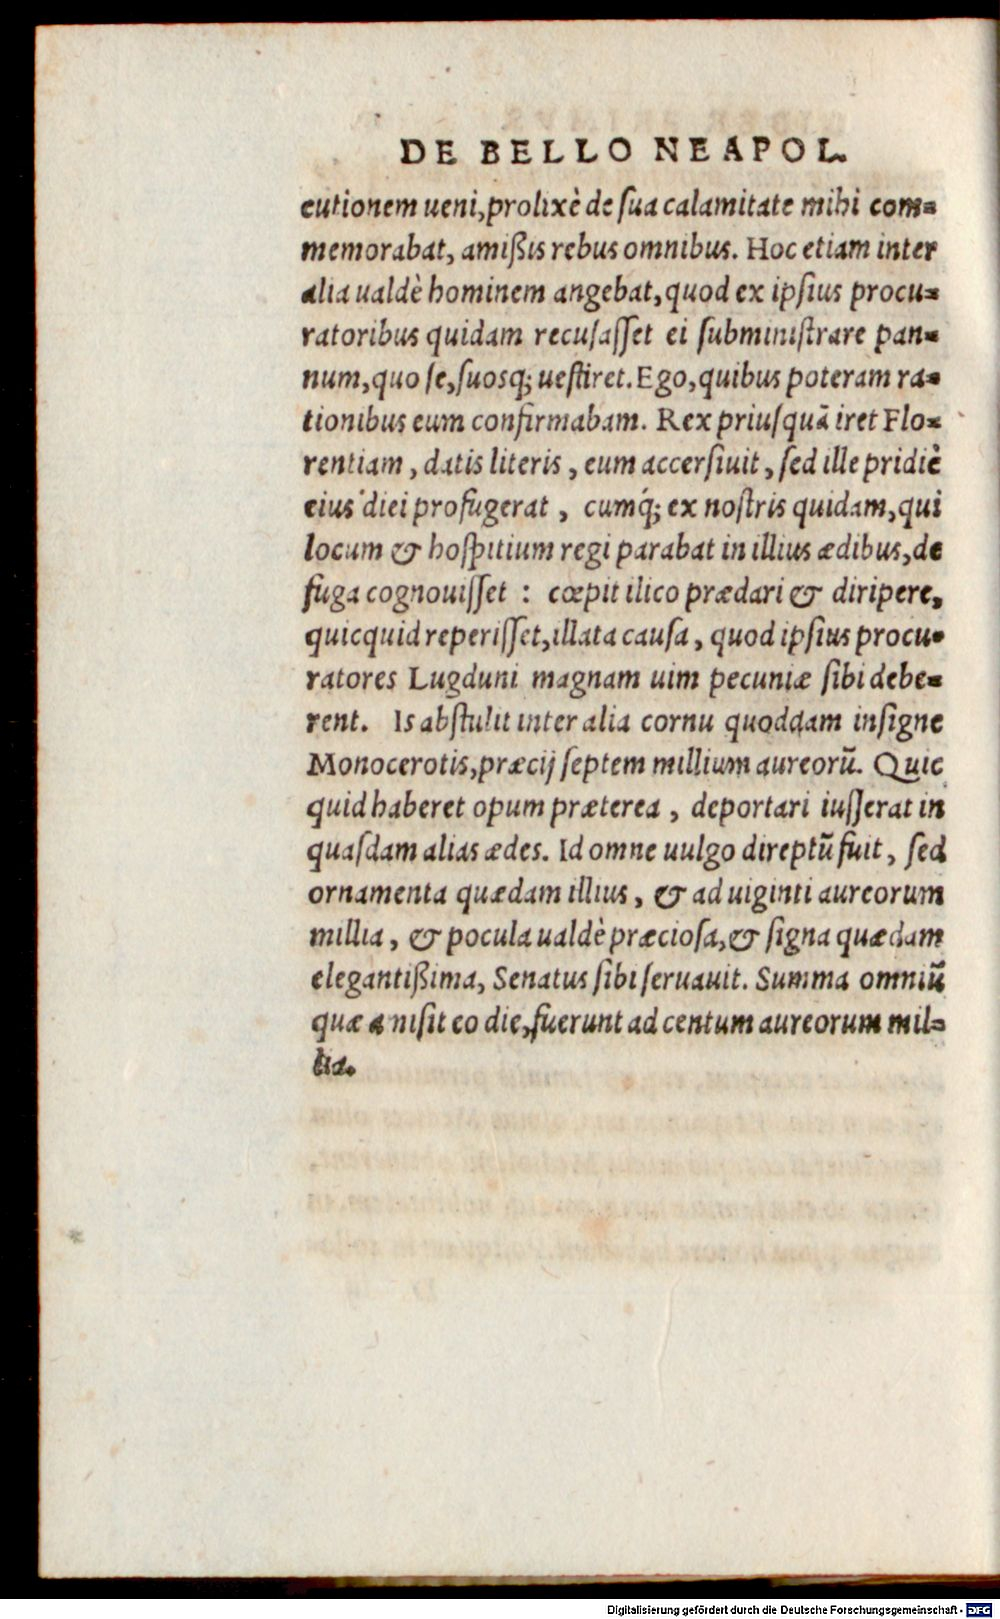 DE BELLO NEAPOL.
cutionem ueni, prolixè de ſua calamitate mihi com=
memorabat, amißis rebus omnibus. Hoc etiam inter
alia ualdè hominem angebat, quod ex ipſius procu=
ratoribus quidam recuſaſſet ei ſubminiſtrare pan=
num, quo ſe, ſuosq; ueſtiret. Ego, quibus poteram ra=
tionibus eum confirmabam. Rex priuſquã iret Flo=
rentiam, datis literis, eum accerſiuit, ſed ille pridiè
eius diei profugerat, cumq́; ex noſtris quidam, qui
locum & hoſpitium regi parabat in illius ædibus, de
fuga cognouiſſet : cœpit ilico prædari & diripere,
quicquid reperiſſet, illata cauſa, quod ipſius procu=
ratores Lugduni magnam uim pecuniæ ſibi debe=
rent. Is abſtulit inter alia cornu quoddam inſigne
Monocerotis, præcij ſeptem millium aureorũ. Quic
quid haberet opum præterea, deportari iuſſerat in
quaſdam alias ædes. Id omne uulgo direptũ fuit, ſed
ornamenta quædam illius, & ad uiginti aureorum
millia, & pocula ualdè præcioſa, & ſigna quædam
elegantißima, Senatus ſibi ſeruauit. Summa omniũ
quæ a niſit eo die, fuerunt ad centum aureorum mil=
lia.
Digitalisierung gefördert durch die Deutsche Forschungsgemeinschaft - DFG